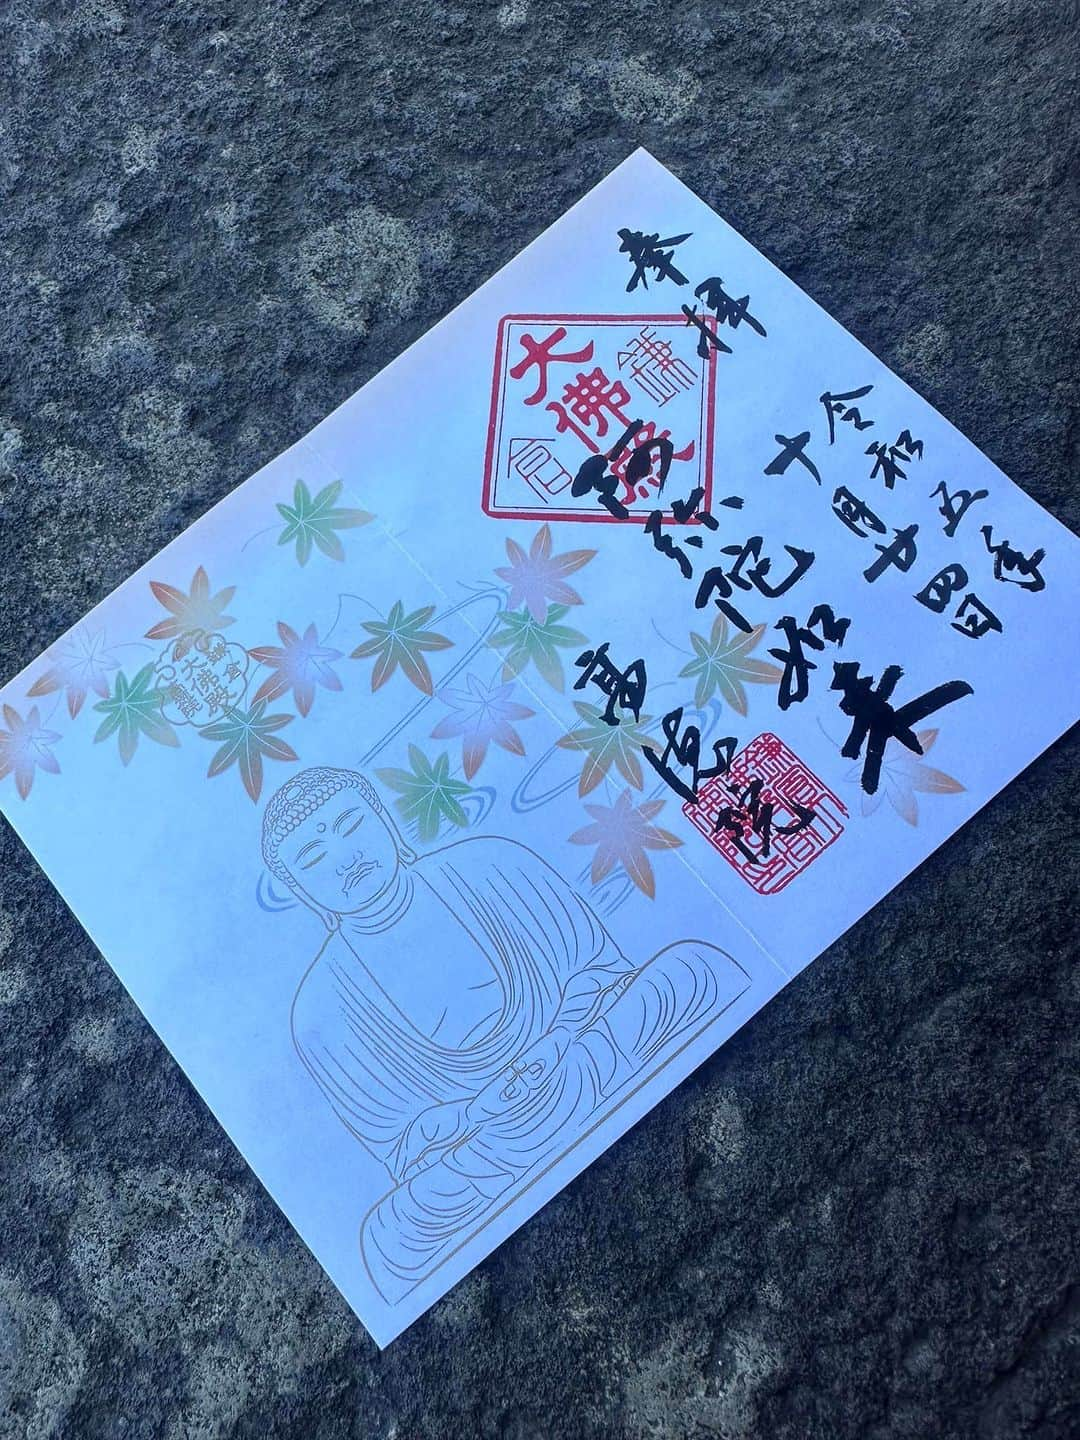 奉拝
令和五年
十月廿四日
鎌倉
大佛殿
阿弥陀如来
高徳院
鎌倉
大佛殿
高徳院